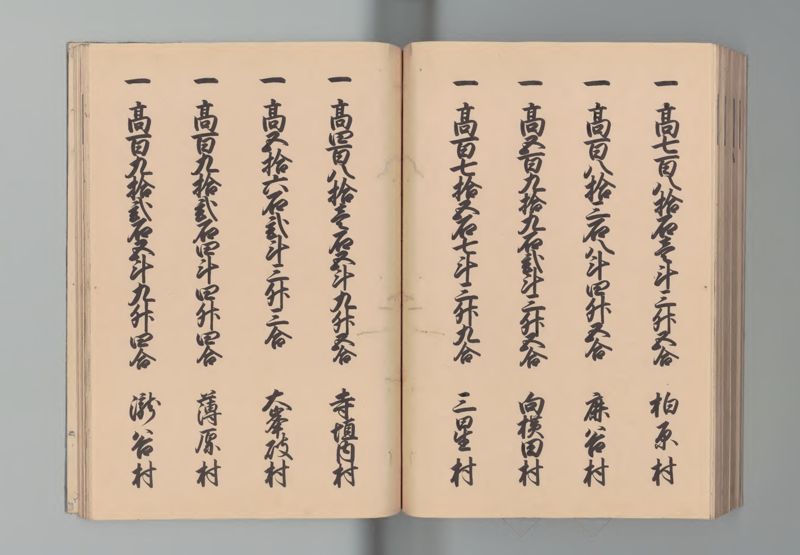 一 高七百八拾石壱斗三升五合 柏原村
一 高百八拾三石八斗四升五合 麻谷村
一 高五百九拾九石弐斗三升五合 向横田村
一 高百七拾五石七斗三升九合 三星村
一 高四百八拾壱石五斗九升五合 寺垣内村
一 高五拾六石弐斗三升三合 大峯破村
一 高百九拾弐石四斗四升四合 薄原村
一 高百九拾弐石五斗九升四合 瀧谷村